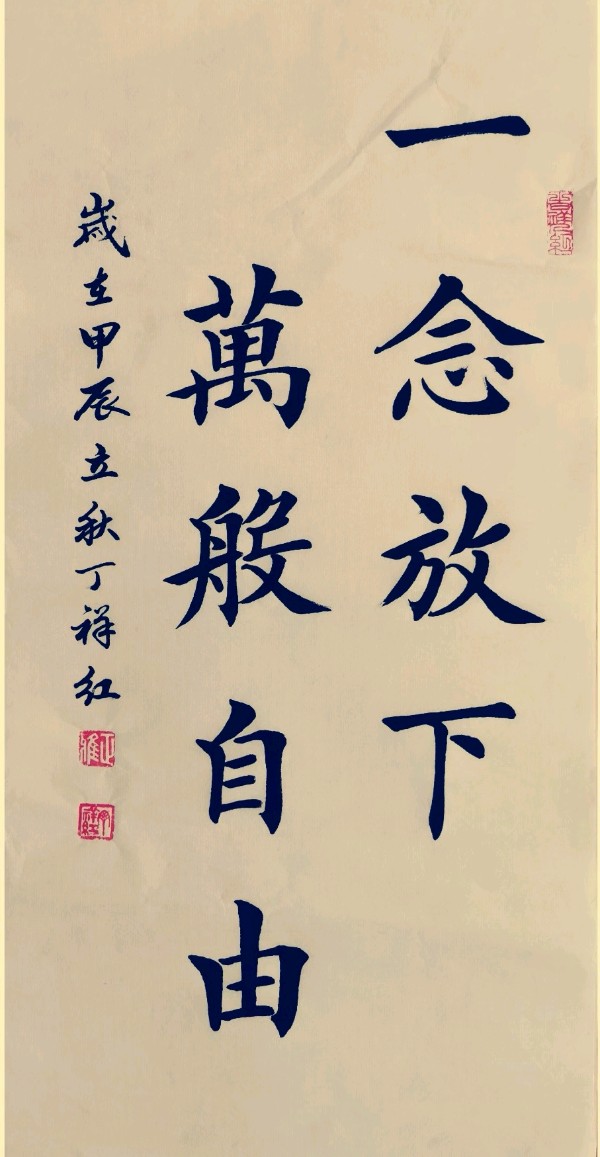 一念放下
萬般自由
歲在甲辰立秋丁祥红